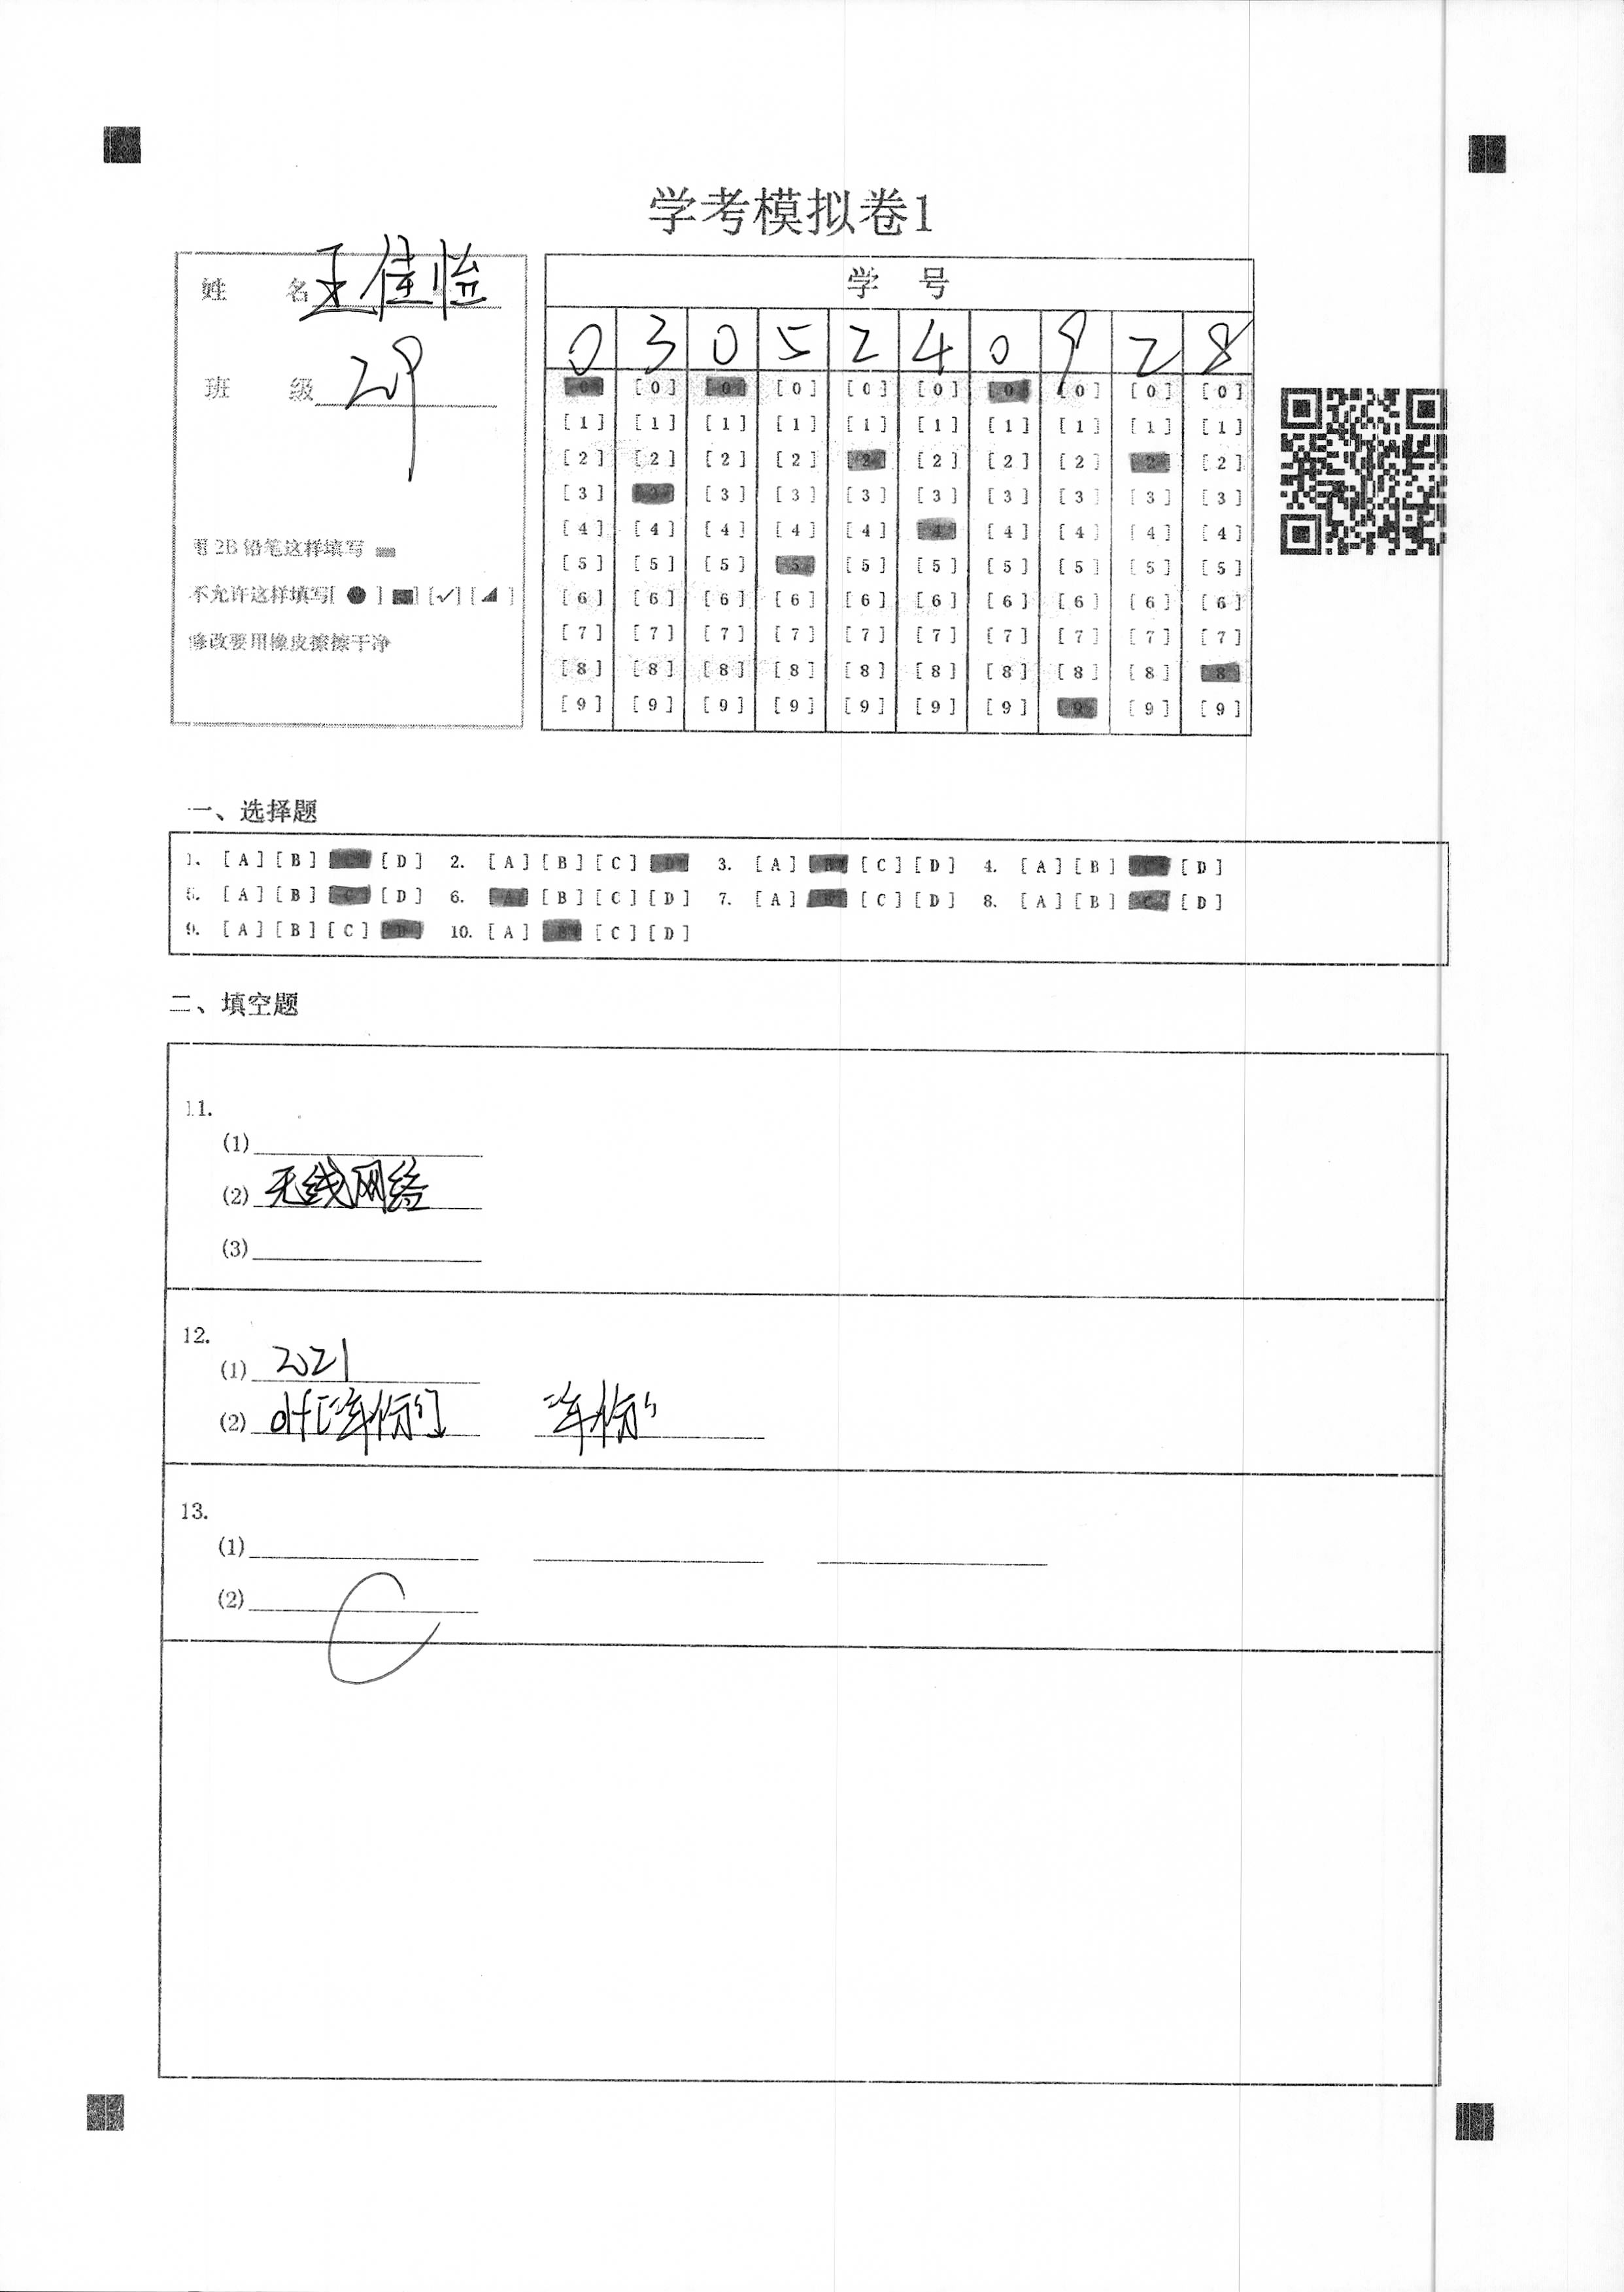 学考模拟卷1
姓 名 王佳怡
班 级 209
用 2B 铅笔这样填写
不允许这样填写[ ● ] [√] [ ]
修改要用橡皮擦擦干净
学 号
0 3 0 5 2 4 0 9 2 8
[0] [0] [0] [0] [0] [0] [0] [0] [0] [0]
[1] [1] [1] [1] [1] [1] [1] [1] [1] [1]
[2] [2] [2] [2] [2] [2] [2] [2] [2] [2]
[3] [3] [3] [3] [3] [3] [3] [3] [3] [3]
[4] [4] [4] [4] [4] [4] [4] [4] [4] [4]
[5] [5] [5] [5] [5] [5] [5] [5] [5] [5]
[6] [6] [6] [6] [6] [6] [6] [6] [6] [6]
[7] [7] [7] [7] [7] [7] [7] [7] [7] [7]
[8] [8] [8] [8] [8] [8] [8] [8] [8] [8]
[9] [9] [9] [9] [9] [9] [9] [9] [9] [9]
一、选择题
1. [A] [B] [C] [D] 2. [A] [B] [C] [D] 3. [A] [B] [C] [D] 4. [A] [B] [C] [D]
5. [A] [B] [C] [D] 6. [A] [B] [C] [D] 7. [A] [B] [C] [D] 8. [A] [B] [C] [D]
9. [A] [B] [C] [D] 10. [A] [B] [C] [D]
二、填空题
11.
(1)
(2) 无线网络
(3)
12.
(1) 2021
(2) df["年份"] "年份"
13.
(1)
(2) C